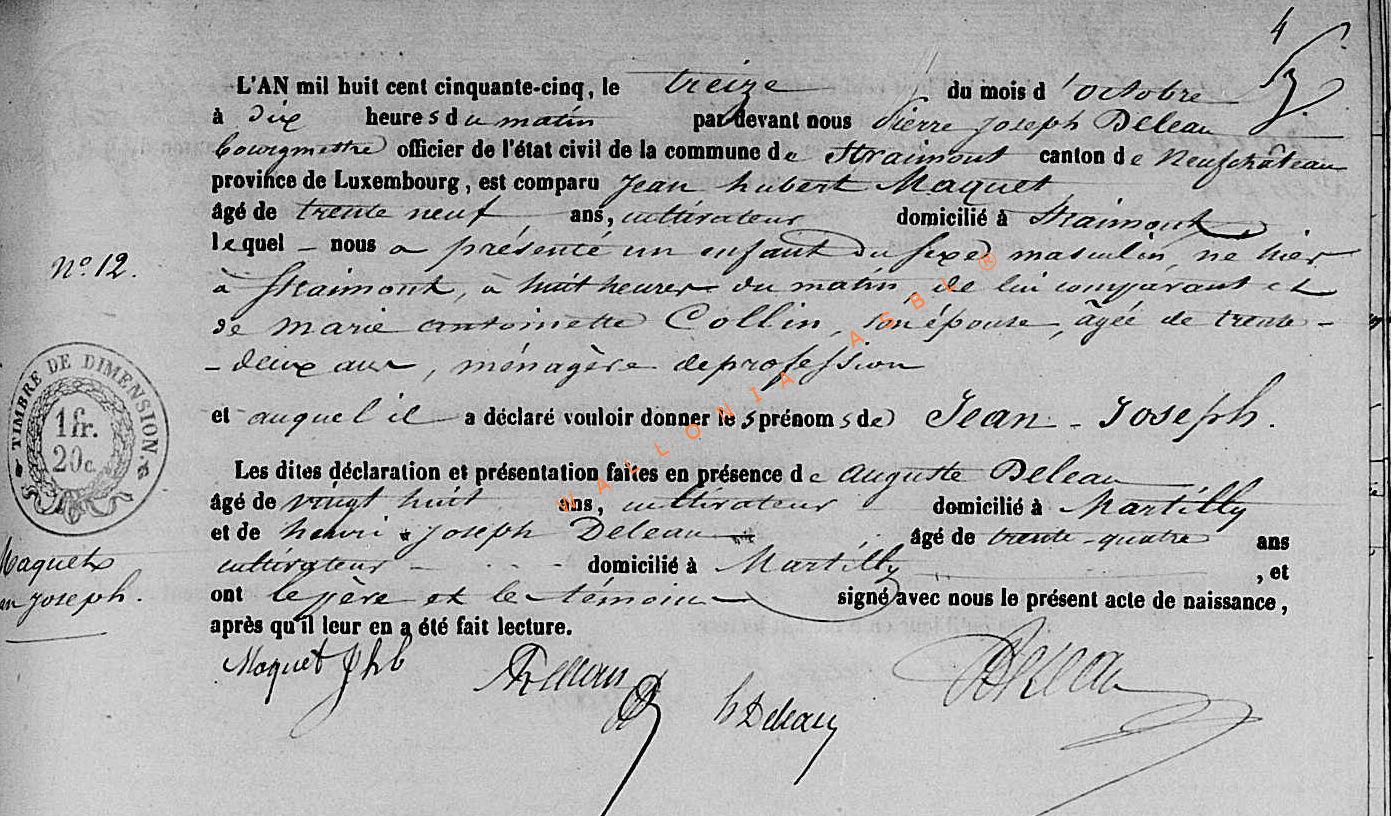 4
L'AN mil huit cent cinquante-cinq, le treize du mois d'octobre
à dix heures du matin par devant nous Pierre Joseph Deleau
bourgmestre officier de l'état civil de la commune de Straimont canton de Neufchâteau
province de Luxembourg, est comparu Jean hubert Maquet
âgé de trente neuf ans, cultivateur domicilié à Straimont
lequel - nous a présenté un enfant du sexe masculin, né hier
N° 12.
à Straimont, à huit heures du matin, de lui comparant et
de marie antoinette Collin, son épouse, âgée de trente-
-deux ans, ménagère de profession
et auquel il a déclaré vouloir donner les prénoms de Jean-Joseph.
TIMBRE DE DIMENSION.
1 fr.
20 c.
Les dites déclaration et présentation faites en présence de auguste Deleau
âgé de vingt huit ans, cultivateur domicilié à Martilly
et de henri Joseph Deleau âgé de trente-quatre ans
cultivateur domicilié à Martilly, et
Maquet
Joseph.
ont le père et le témoin signé avec nous le présent acte de naissance,
après qu'il leur en a été fait lecture.
Maquet Jhb
h Deleau
Deleau
WALLONIA ASBL ®